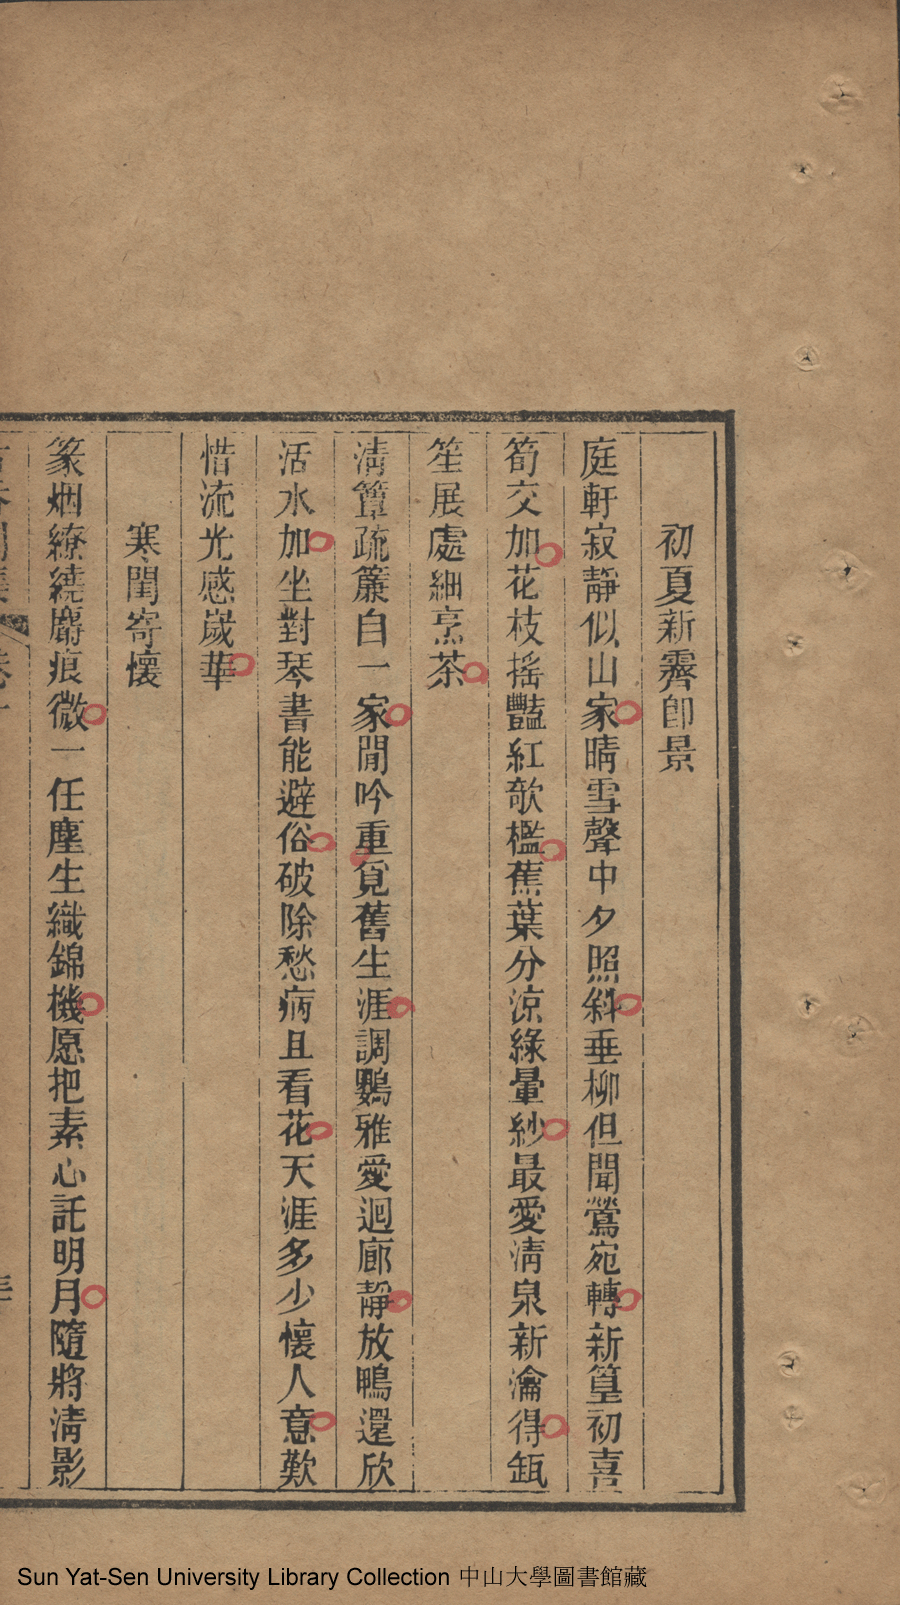 初夏新霽即景
庭軒寂靜似山家晴雪聲中夕照斜垂柳但聞鶯宛轉新篁初喜
筍交加花枝搖豔紅欹檻蕉葉分涼綠暈紗最愛清泉新瀹得缻
笙展處細烹茶
清簟疏簾自一家閒吟重覓舊生涯調鸚雅愛迴廊靜放鴨還欣
活水加坐對琴書能避俗破除愁病且看花天涯多少懷人意歎
惜流光感歲華
寒閨寄懷
篆烟繚繞麝痕微一任塵生織錦機愿把素心託明月隨將清影
Sun Yat-Sen University Library Collection 中山大學圖書館藏